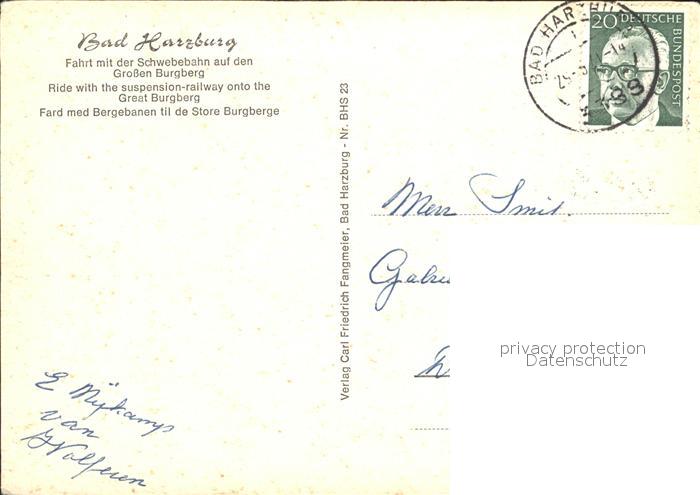 Bad Harzburg
Fahrt mit der Schwebebahn auf den
Großen Burgberg
Ride with the suspension-railway onto the
Great Burgberg
Fard med Bergebanen til de Store Burgberge
Verlag Carl Friedrich Fangmeier, Bad Harzburg - Nr. BHS 23
BAD HARZBU
20 DEUTSCHE
BUNDESPOST
388
Smit.
privacy protection
Datenschutz
van